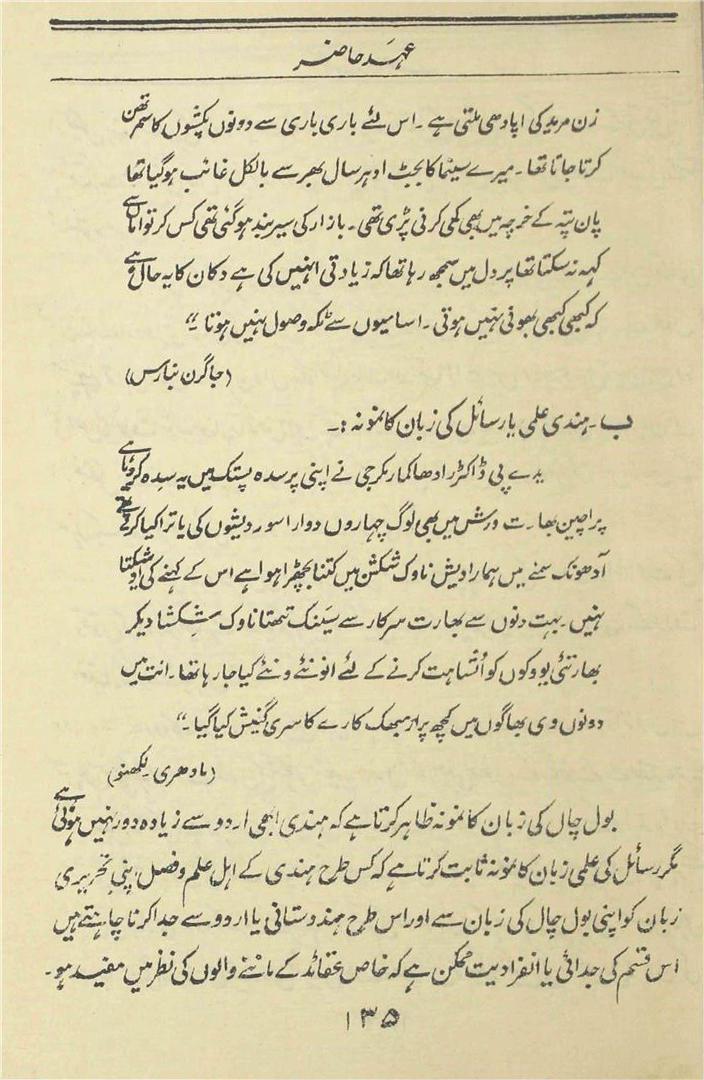 عہد حاضر
زن مرید کی اپادھی ملتی ہے ۔ اس لئے باری باری سے دونوں پکشوں کا سمرتھن
کرتا جاتا تھا ۔ میرے سینما کا بجٹ ادہر سال بھر سے بالکل غائب ہوگیا تھا
پان پتہ کے خرچہ میں بھی کمی کرنی پڑی تھی ۔ بازار کی سیر بند ہوگئی تھی کس کر تو اماں سے
کہہ نہ سکتا تھا پر دل میں سمجھ رہا تھا کہ زیادتی انہیں کی ہے دکان کا یہ حال ہے
کہ کبھی کبھی بھونی نہیں ہوتی ۔ اسامیوں سے ٹکہ وصول نہیں ہوتا ۔“
(جاگرن بنارس)
ب ۔ ہندی علمی یا رسائل کی زبان کا نمونہ :۔
یدے پی ڈاکٹر رادھا کمار مکرجی نے اپنی پرسدہ پستک میں یہ سدہ کردیا ہے
پراچین بھارت ورش میں بھی لوگ جہازوں دوارا سور دیشوں کی یاترا کیا کرتے تھے
آدھونک سمئے میں ہمارا دیش ناوک شکشن میں کتنا بچھڑا ہوا ہے اس کے کہنے کی آوشکتا
نہیں ۔ بہت دنوں سے بھارت سرکار سے سینک تتھا ناوک شکشا دیکر
بھارتئی یووکوں کو اُتساہت کرنے کے لئے انونئے ونئے کیا جا رہا تھا ۔ انت میں
دونوں وی بھاگوں میں کچھ پرارمبھک کارے کا سری گنیش کیا گیا ۔“
(مادھری ۔ لکھنؤ)
بول چال کی زبان کا نمونہ ظاہر کرتا ہے کہ ہندی ابھی اردو سے زیادہ دور نہیں ہوئی ہے
مگر رسائل کی علمی زبان کا نمونہ ثابت کرتا ہے کہ کس طرح ہندی کے اہل علم و فضل اپنی تحریری
زبان کو اپنی بول چال کی زبان سے اور اس طرح ہندوستانی یا اردو سے جدا کرنا چاہتے ہیں
اس قسم کی جدائی یا انفرادیت ممکن ہے کہ خاص عقائد کے ماننے والوں کی نظر میں مفید ہو ۔
۱۳۵